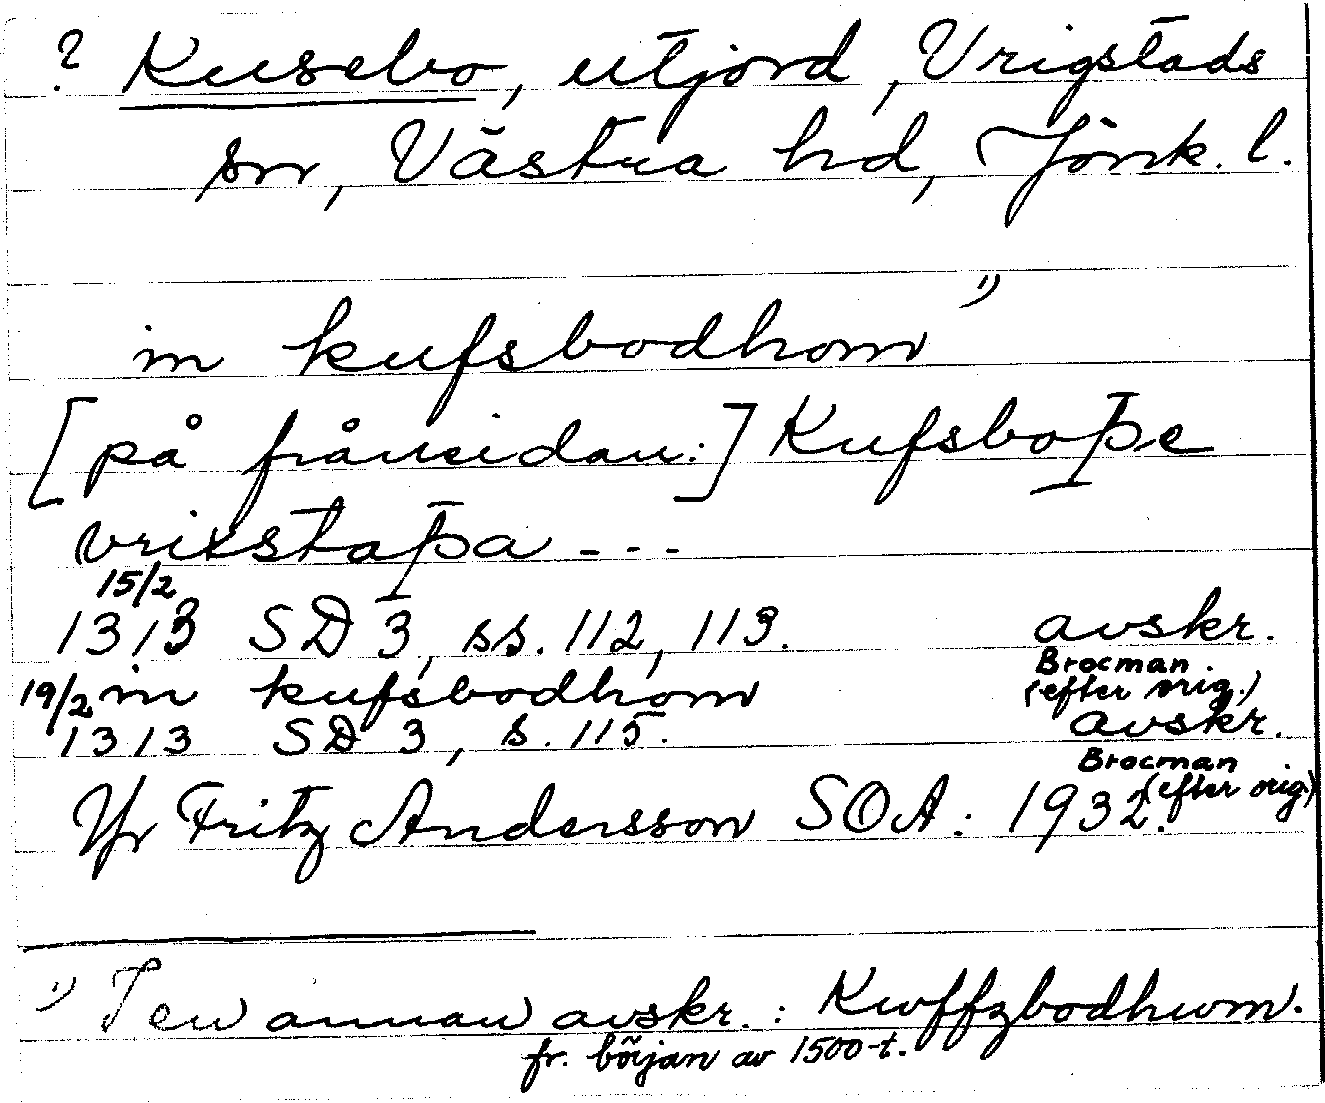 ? Kusebo, utjord, Vrigstads
sn, Västra hd, Jönk. l.
in kufsbodhom 1)
[på frånsidan:] Kufsboþe
vrixstaþa - - -
15/2
1313 SD 3, ss. 112, 113. avskr.
Brocman
(efter orig.)
19/2 in kufsbodhom
1313 SD 3, s. 115. avskr.
Brocman
(efter orig.)
Hr Fritz Andersson SOA. 1932.
1) I en annan avskr. : Kwffzbodhwm.
fr. början av 1500-t.